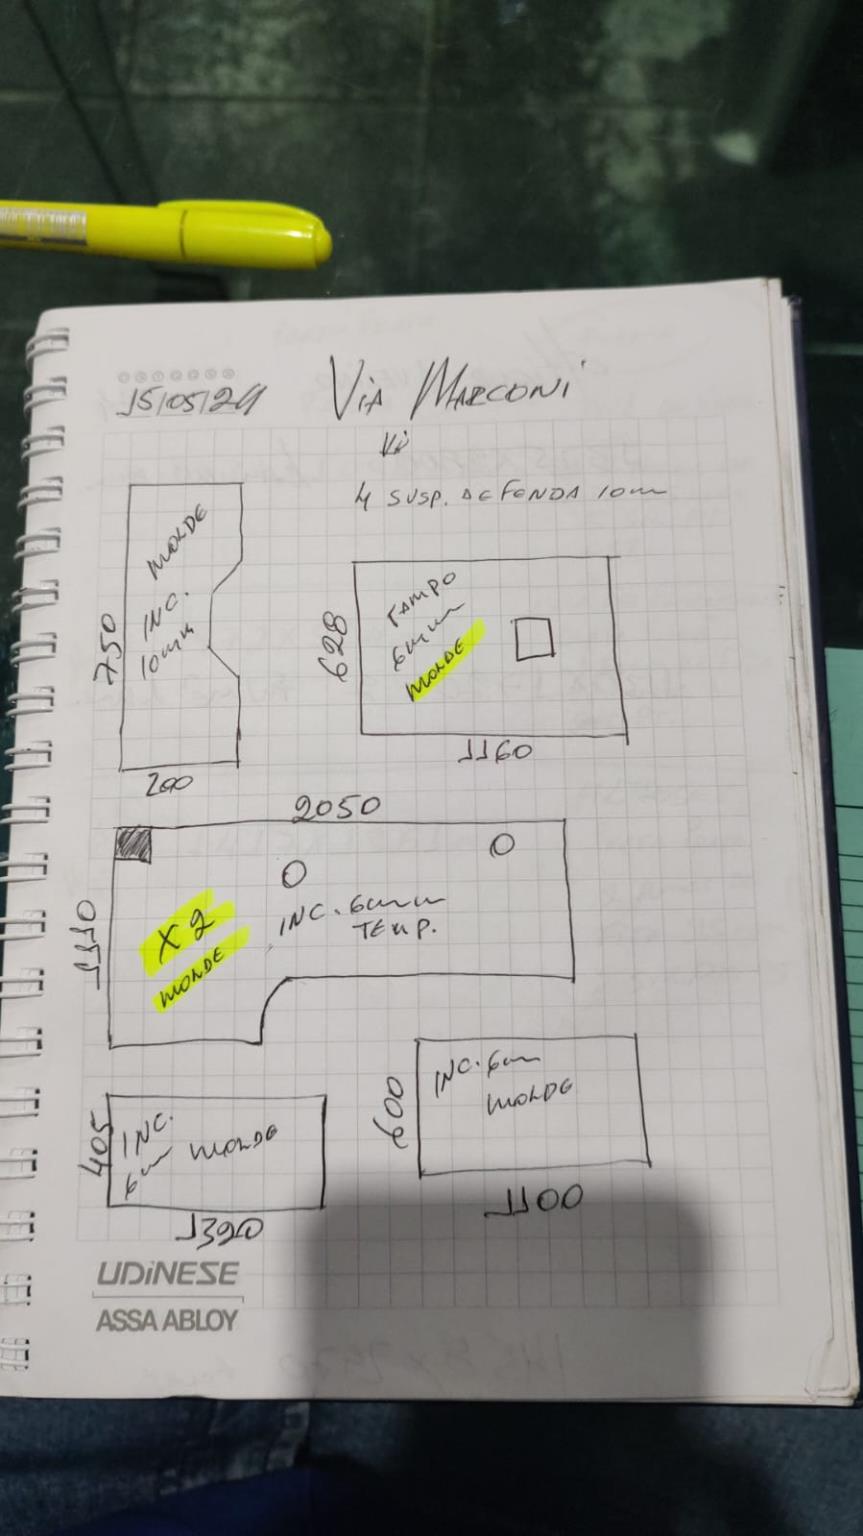 15/05/24
Via Marconi
Vi
4 SUSP. DE FENDA 10mm
MOLDE
INC.
10mm
750
200
TAMPO
6mm
MOLDE
628
1160
2050
1110
X2
MOLDE
INC. 6mm
TEMP.
INC.
6mm MOLDE
405
1390
INC. 6mm
MOLDE
600
1100
UDINESE
ASSA ABLOY